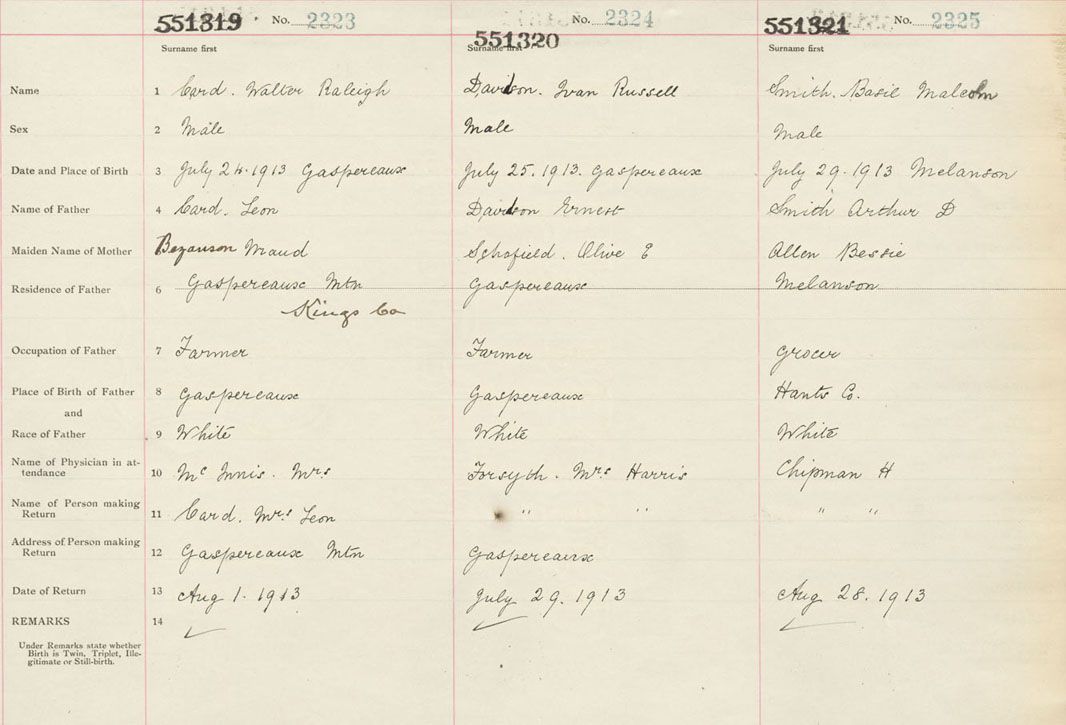 551319 No. 2323 551320 No. 2324 551321 No. 2325
Surname first Surname first Surname first
Name 1 Card. Walter Raleigh Davidson. Ivan Russell Smith. Basil Malcolm
Sex 2 Male Male Male
Date and Place of Birth 3 July 24. 1913 Gaspereaux July 25. 1913. Gaspereaux July 29. 1913 Melanson
Name of Father 4 Card. Leon Davidson Ernest Smith Arthur D
Maiden Name of Mother Bezanson Maud Schofield. Olive E Allen Bessie
Residence of Father 6 Gaspereaux Mtn Gaspereaux Melanson
Kings Co
Occupation of Father 7 Farmer Farmer Grocer
Place of Birth of Father 8 Gaspereaux Gaspereaux Hants Co.
and
Race of Father 9 White White White
Name of Physician in at-
tendance 10 Mc Innis. Mrs Forsyth. Mrs Harris Chipman H
Name of Person making
Return 11 Card. Mrs Leon " " " "
Address of Person making
Return 12 Gaspereaux Mtn Gaspereaux
Date of Return 13 Aug 1. 1913 July 29. 1913 Aug 28. 1913
REMARKS 14
Under Remarks state whether
Birth is Twin, Triplet, Ille-
gitimate or Still-birth.